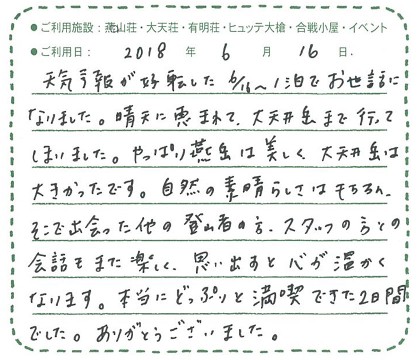 ●ご利用施設：燕山荘・大天荘・有明荘・ヒュッテ大槍・合戦小屋・イベント
●ご利用日： 2018 年 6 月 16 日.
天気予報が好転した 6/16〜1泊でお世話に
なりました。晴天に恵まれて、大天井岳まで行って
しまいました。やっぱり燕岳は美しく、大天井岳は
大きかったです。自然の素晴らしさはもちろん、
そこで出会った他の登山者の方、スタッフの方との
会話もまた楽しく、思い出すと心が温かく
なります。本当にどっぷりと満喫できた2日間
でした。ありがとうございました。